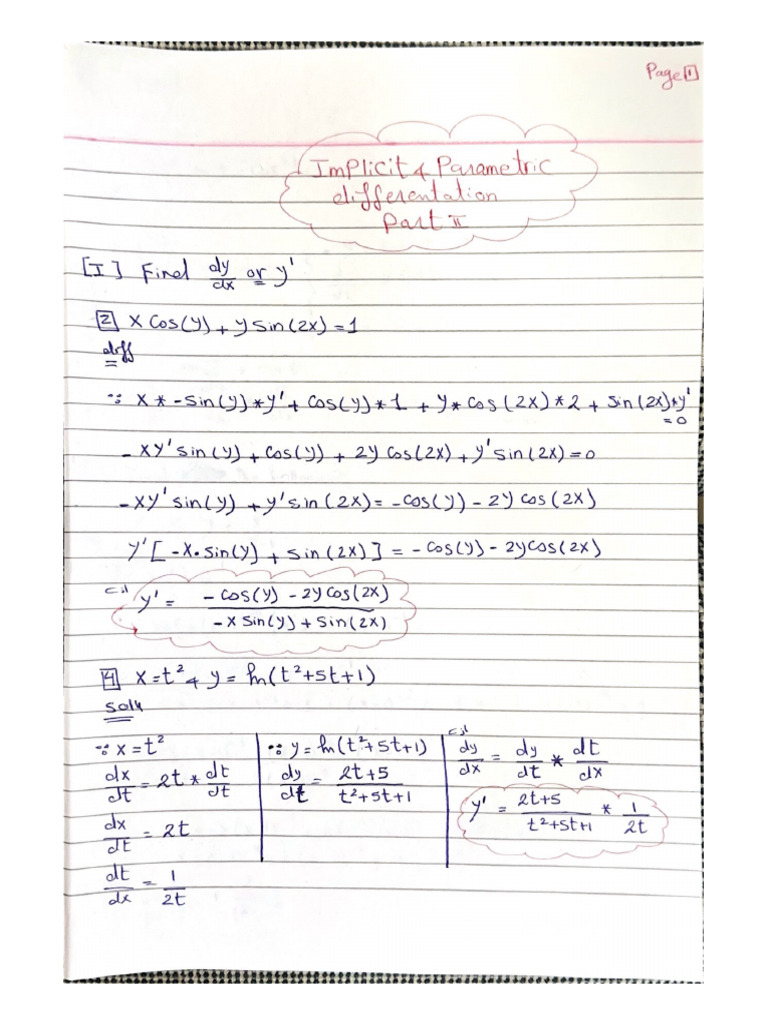 Page 1
Implicit & Parametric
differentation
Part II
[I] Find dy/dx or y'
2 x cos(y) + y sin(2x) = 1
diff
∵ x * -sin(y) * y' + cos(y) * 1 + y * cos(2x) * 2 + sin(2x) * y' = 0
-xy' sin(y) + cos(y) + 2y cos(2x) + y' sin(2x) = 0
-xy' sin(y) + y' sin(2x) = -cos(y) - 2y cos(2x)
y' [ -x · sin(y) + sin(2x) ] = -cos(y) - 2y cos(2x)
y' = (-cos(y) - 2y cos(2x)) / (-x sin(y) + sin(2x))
4 x = t² & y = ln(t² + 5t + 1)
Soln
∵ x = t²
dx/dt = 2t * dt/dt
dx/dt = 2t
dt/dx = 1/2t
∵ y = ln(t² + 5t + 1)
dy/dt = (2t + 5) / (t² + 5t + 1)
dy/dx = dy/dt * dt/dx
y' = (2t + 5) / (t² + 5t + 1) * 1/2t